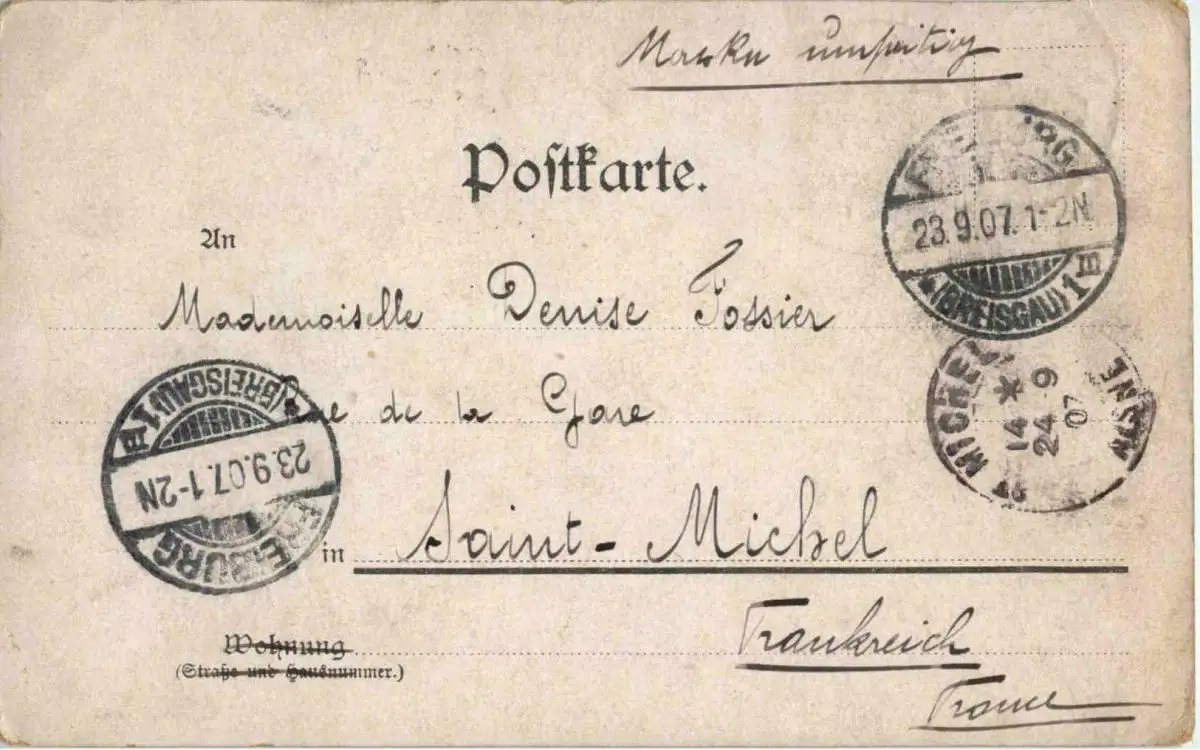 Marke umseitig
Postkarte.
FREIBURG
23.9.07. 1-2N
*(BREISGAU) 1 III
An
Mademoiselle Denise Fossier
MICHEL
AISNE
14 *
24 9
07
FREIBURG
23.9.07. 1-2N
(BREISGAU) 1 III
de la Gare
in Saint-Michel
Wohnung
(Straße und Hausnummer.)
Frankreich
France